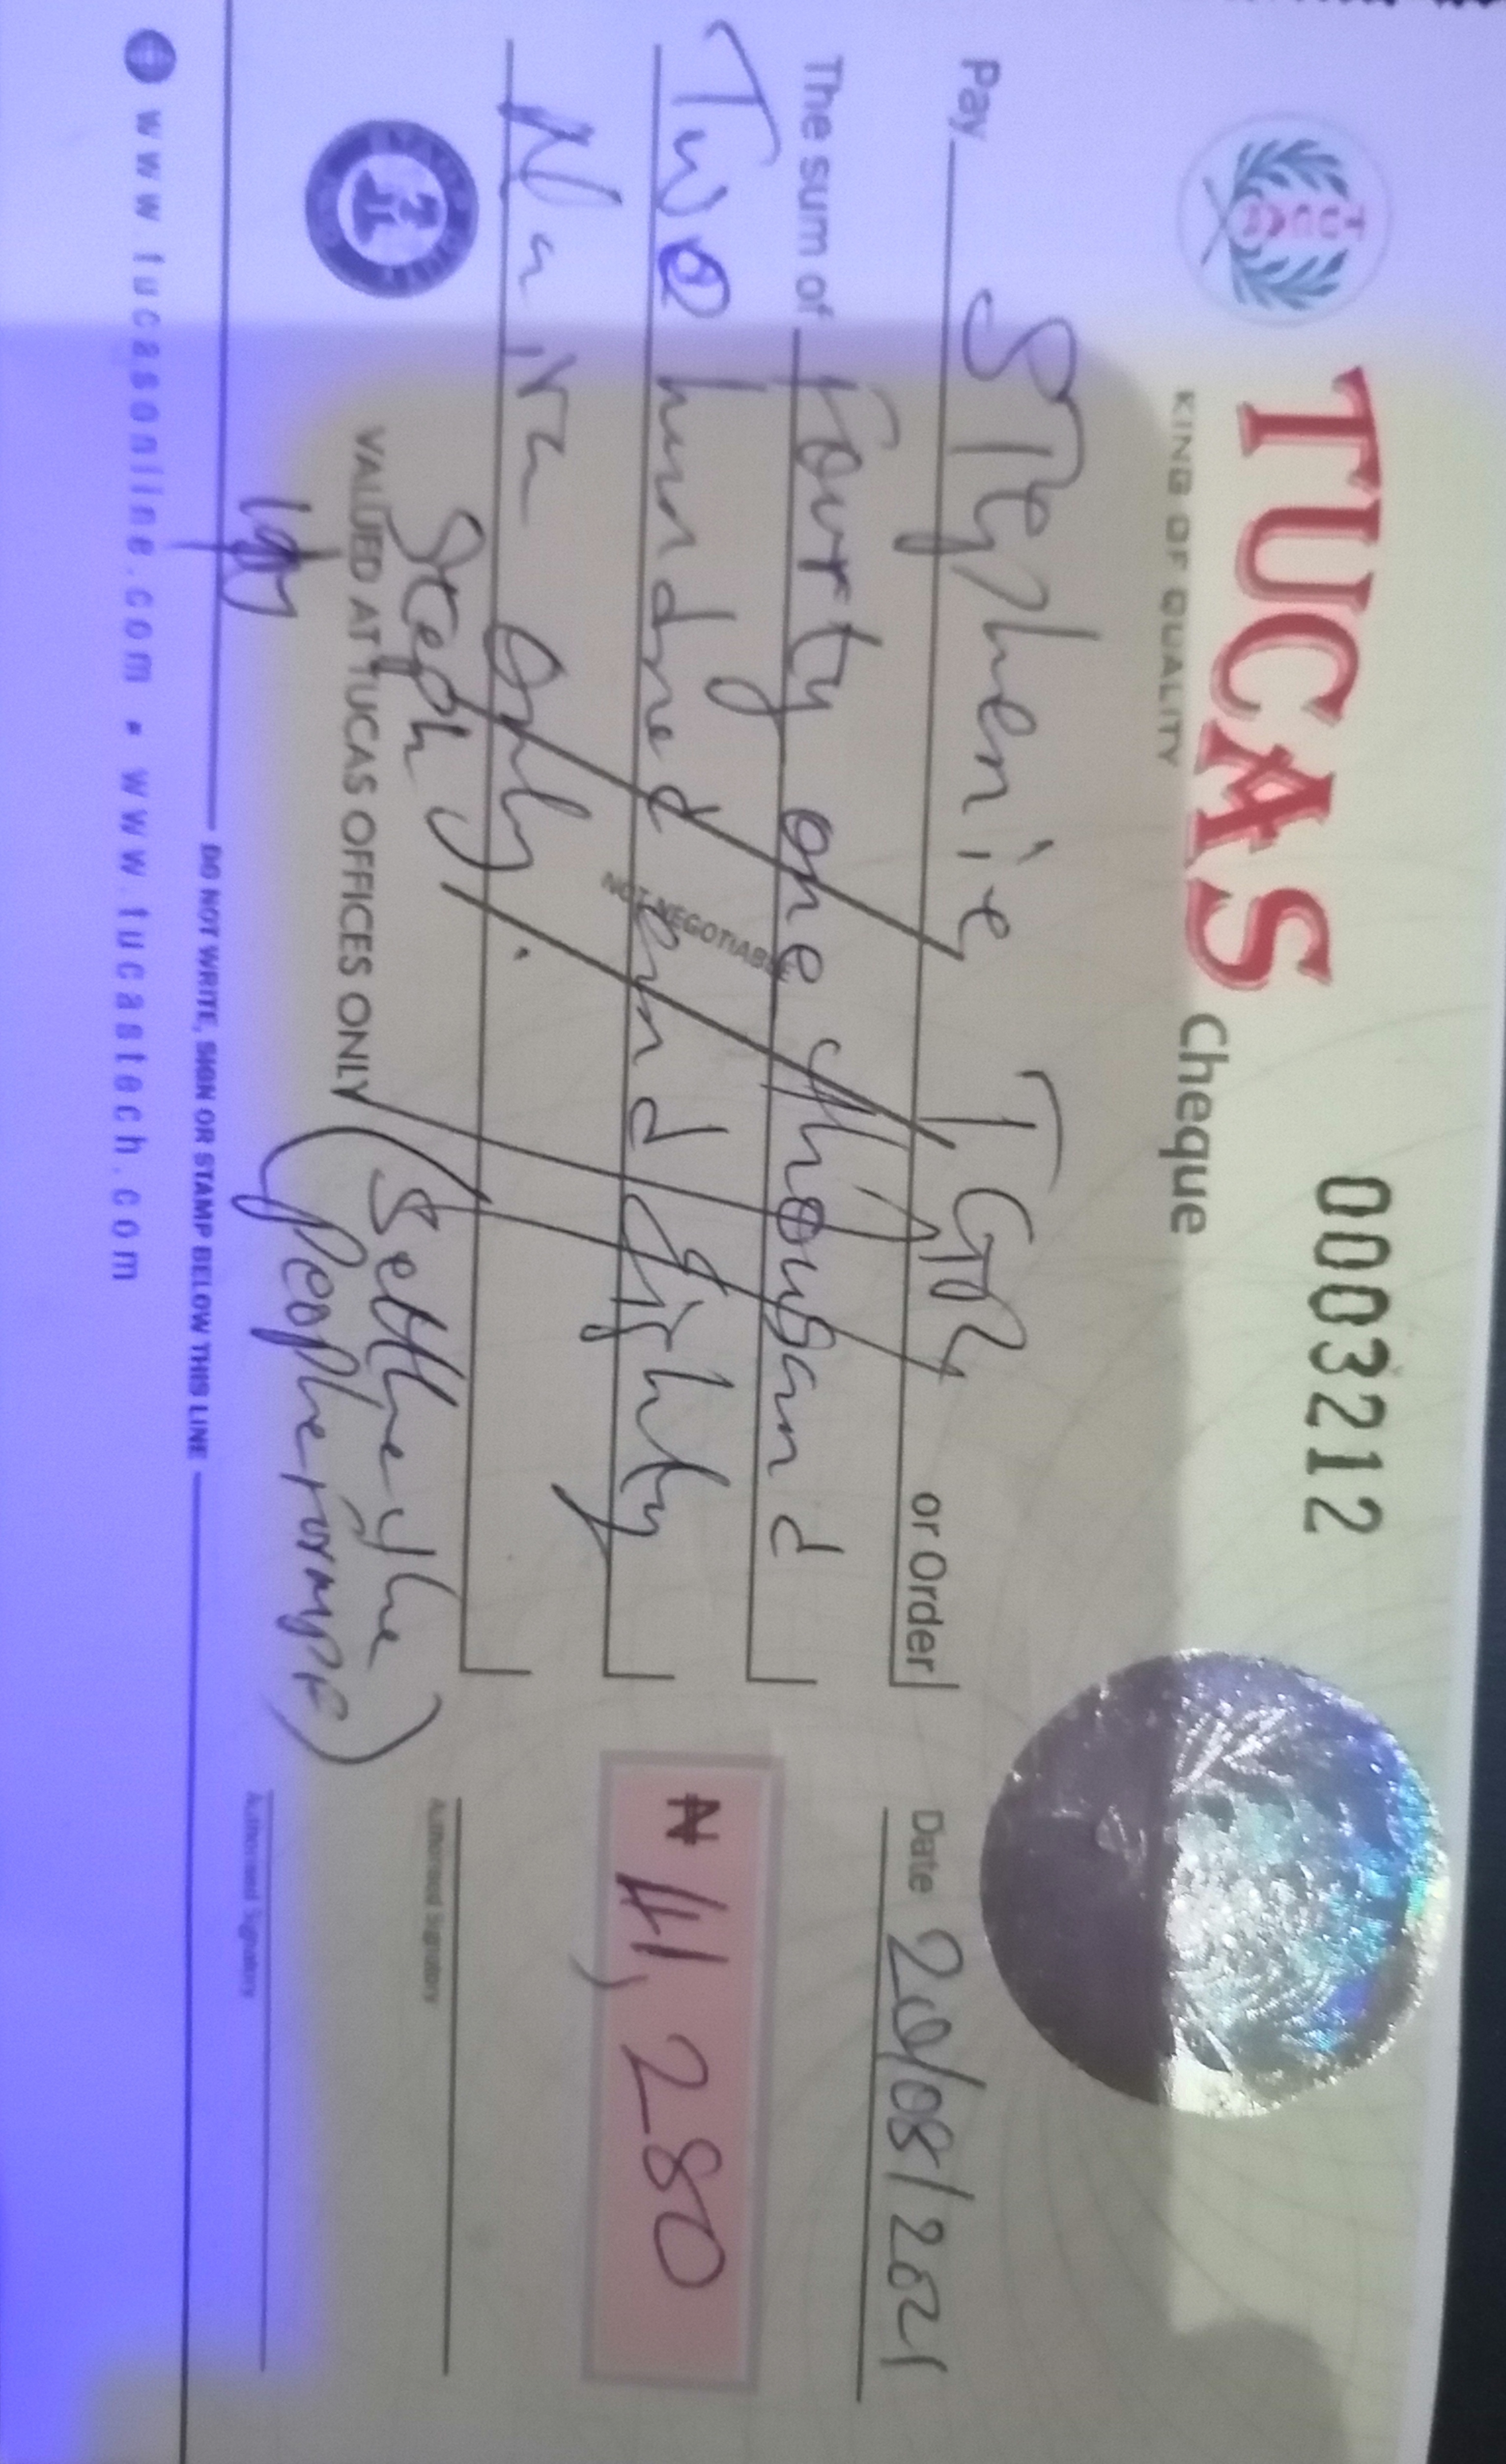 TUCAS
KING OF QUALITY
Cheque
0003212
Pay Stephenie or Order
Date 20/08/2021
The sum of fourty one thousand
Two hundred and Eighty
₦ 41,280
Naira only.
NOT NEGOTIABLE
Steph
VALUED AT TUCAS OFFICES ONLY
(Settle the
people
Authorised Signatory
Authorised Signatory
DO NOT WRITE, SIGN OR STAMP BELOW THIS LINE
www.tucasonline.com • www.tucastech.com